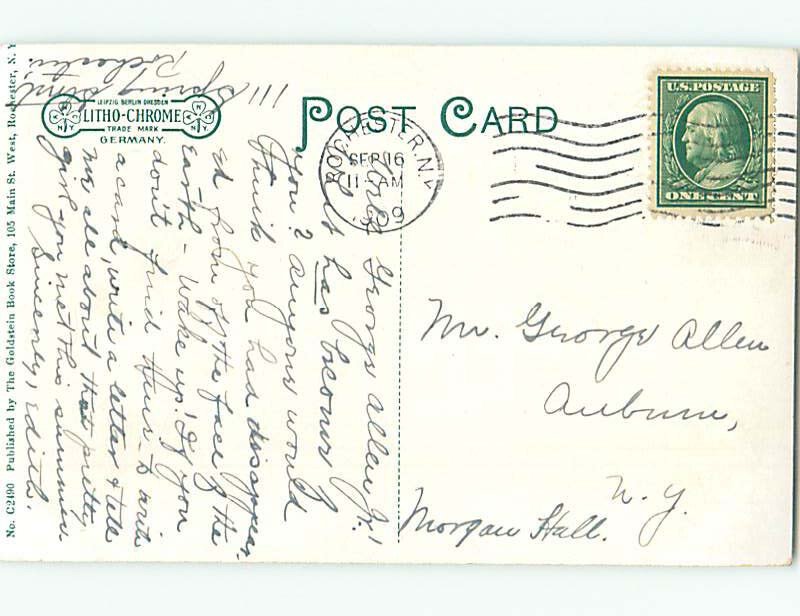 111 Spring Street
Rochester.
LEIPZIG BERLIN DRESDEN
LITHO-CHROME
TRADE MARK
GERMANY.
N
N.Y.
N
N.Y.
POST CARD
ROCHESTER, N.Y.
SEP 16
11-AM
1909
U.S. POSTAGE
ONE CENT
George Allen Jr!
has become of
you? Anyone would
think you had disappear-
ed from off the face of the
earth - Wake up! If you
don't find time to write
a card, write a letter & tell
me all about that pretty
girl you met this summer
Sincerely, Edith.
Mr. George Allen
Auburn,
N.Y.
Morgan Hall.
No. C2490 Published by The Goldstein Book Store, 105 Main St. West, Rochester, N.Y